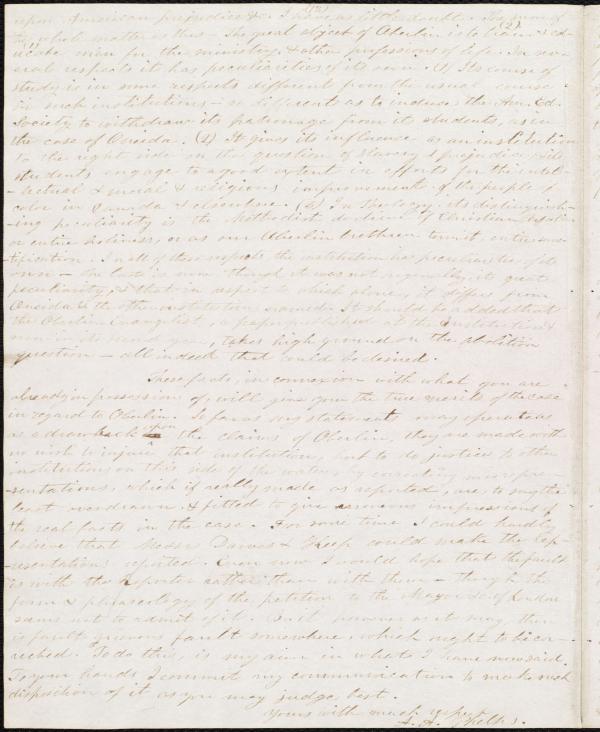 upon American prejudices &c. I have as little doubt. The ground of
the whole matter is this – The great object of Oberlin is to train & ed-
ucate men for the ministry, & other professions of life. In sev-
eral respects it has peculiarities of its own. (1) Its course of
study is in some respects different from the usual course
in such institutions – so different as to induce the Am. Ed.
Society to withdraw its patronage from its students, as in
the case of Oneida. (2) It gives its influence as an institution
to the right side on the question of slavery & prejudice, & its
students engage to a good extent in efforts for the intel-
-lectual & moral & religious improvement of the people of
color in Canada & elsewhere. (3) In Theology, its distinguish-
-ing peculiarity is the Methodist doctrine of Christian
or entire holiness, or as our Oberlin brethren term it, entire sanc-
tification. In all of these respects the institution has peculiarities of its
own – the last is now, though it was not originally its great
peculiarity, & that in respect to which alone, it differs from
Oneida & the other institutions named. It should be added that
the Oberlin Evangelist, a paper published at the Institution &
send you, takes high ground on the abolition
question – all indeed that could be desired.
These facts, in connexion with what you are
already in possession of, will give you the true merits of the case
in regard to Oberlin. So far as my statements may operate as
as a drawback upon the claims of Oberlin, they are made with
no wish to injure that institution, but to do justice to other
institutions on this side of the water, by correcting misrepre-
-sentations, which if really made as reported, are, to say the
least overdrawn & fitted to give erroneous impressions of
the real facts in the case. For some time I could hardly
believe that Messr Dawes & Keep could make the rep-
-resentations reported. Even now I would hope that the fault
is with the reporter rather than with them – though the
form & phraseology of the petition to the Mayor &c of London
seems not to admit of it. But however as it may, there
is fault, grievous fault somewhere, which ought to be cor-
-rected. To do this, is my aim in what I have now said.
To your hands I commit my communication to make such
disposition of it as you may judge best.
Yours with much respect
A. A. Phelps.